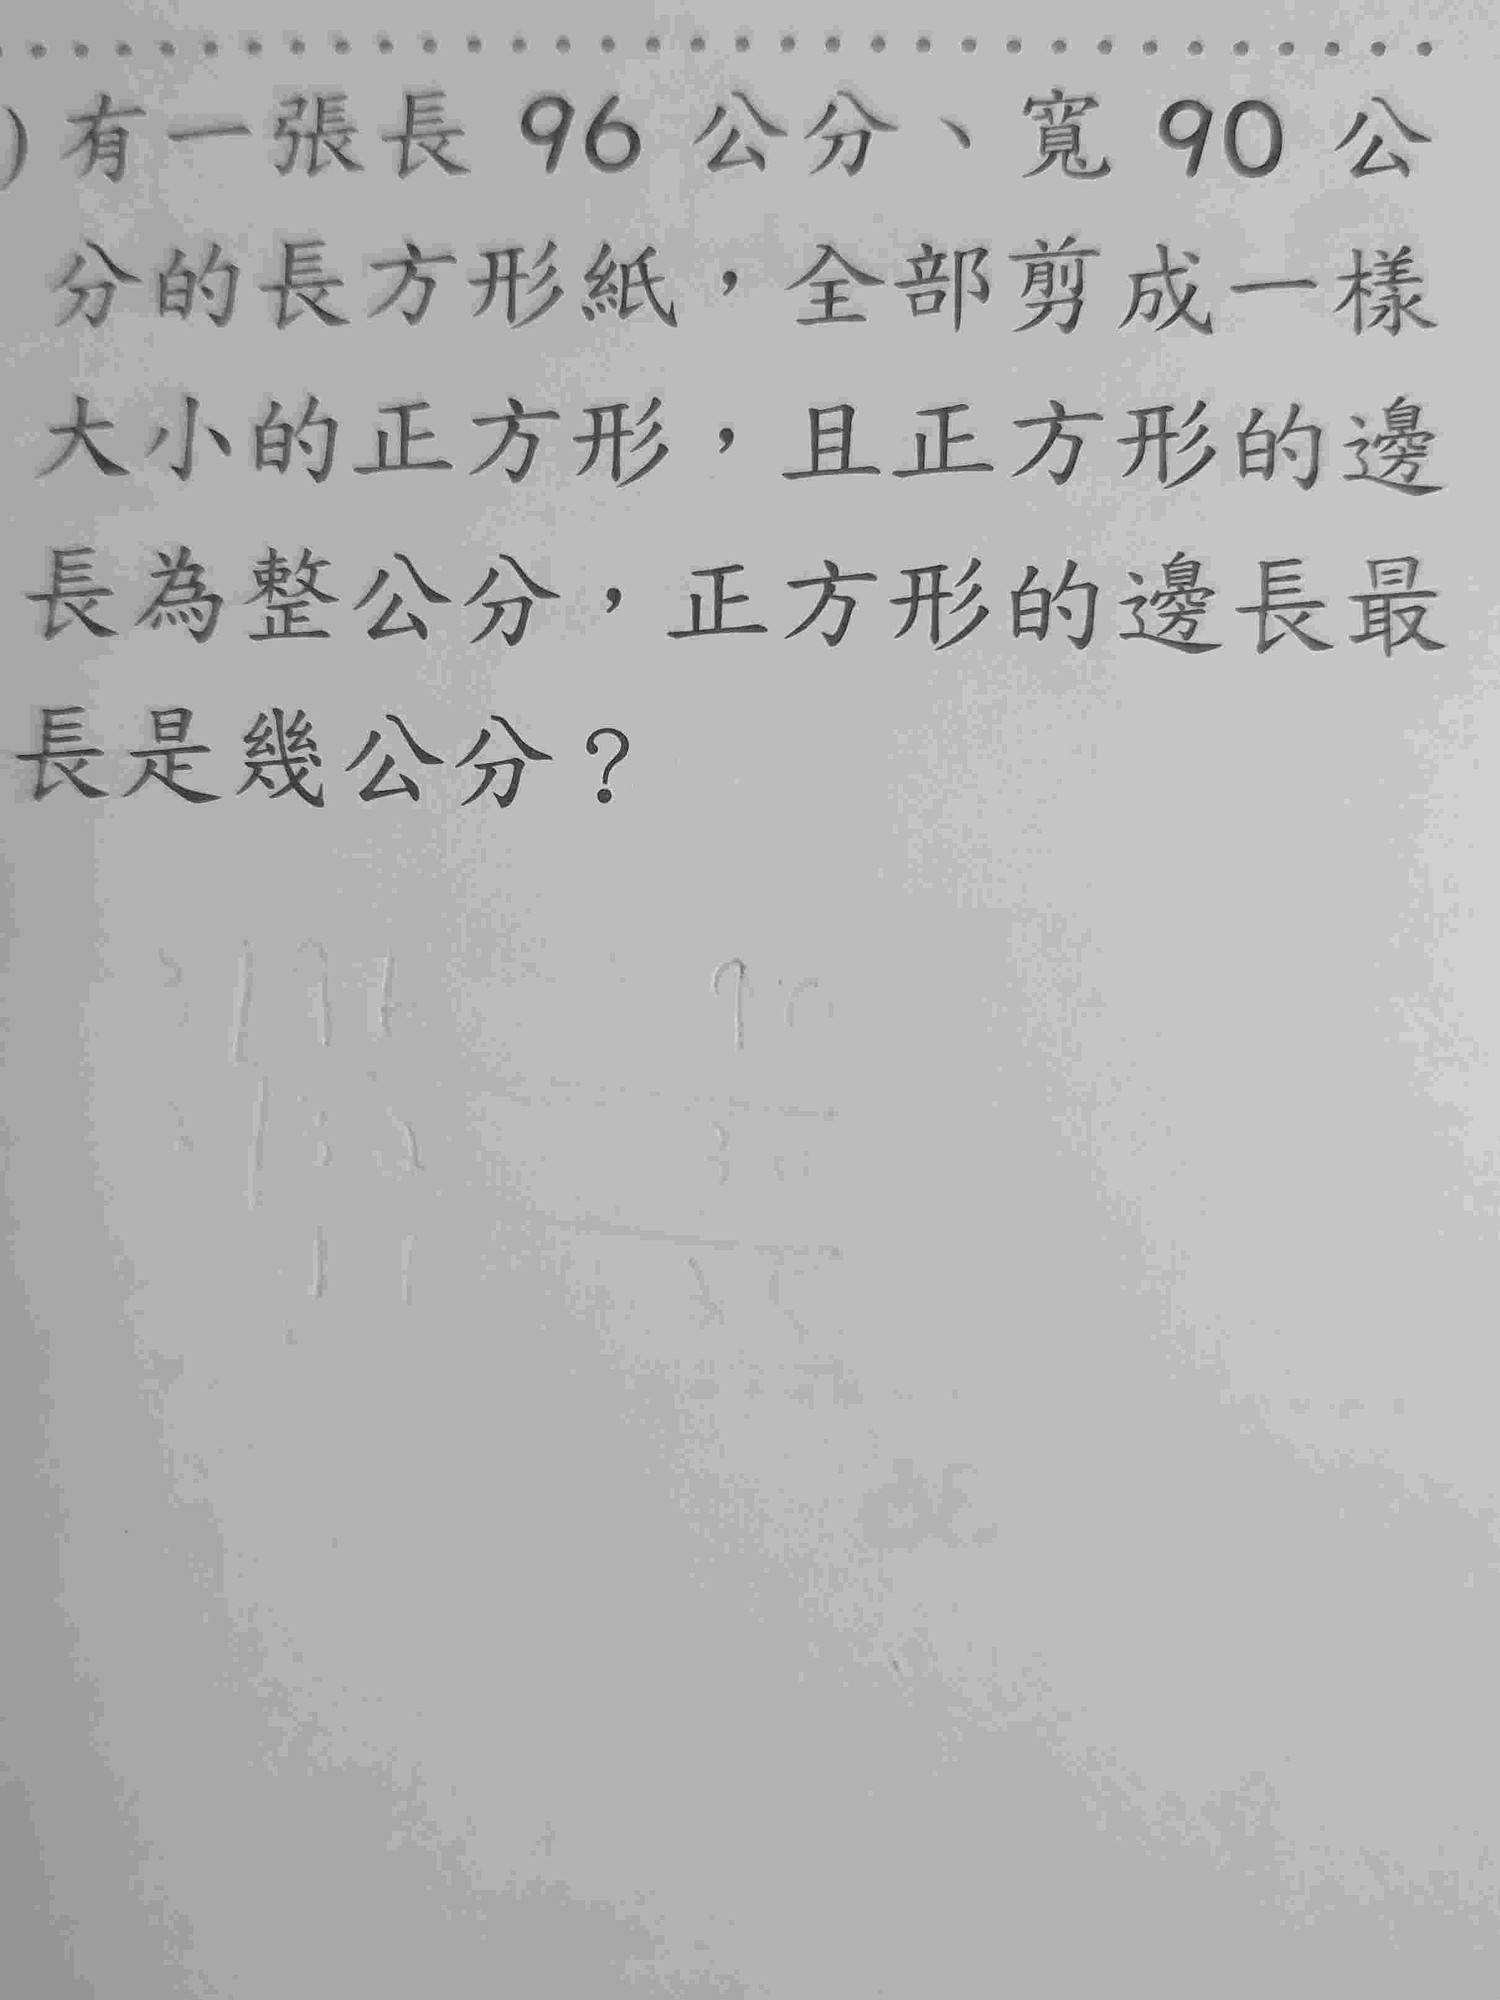 ) 有一張長 96 公分、寬 90 公
分的長方形紙，全部剪成一樣
大小的正方形，且正方形的邊
長為整公分，正方形的邊長最
長是幾公分？